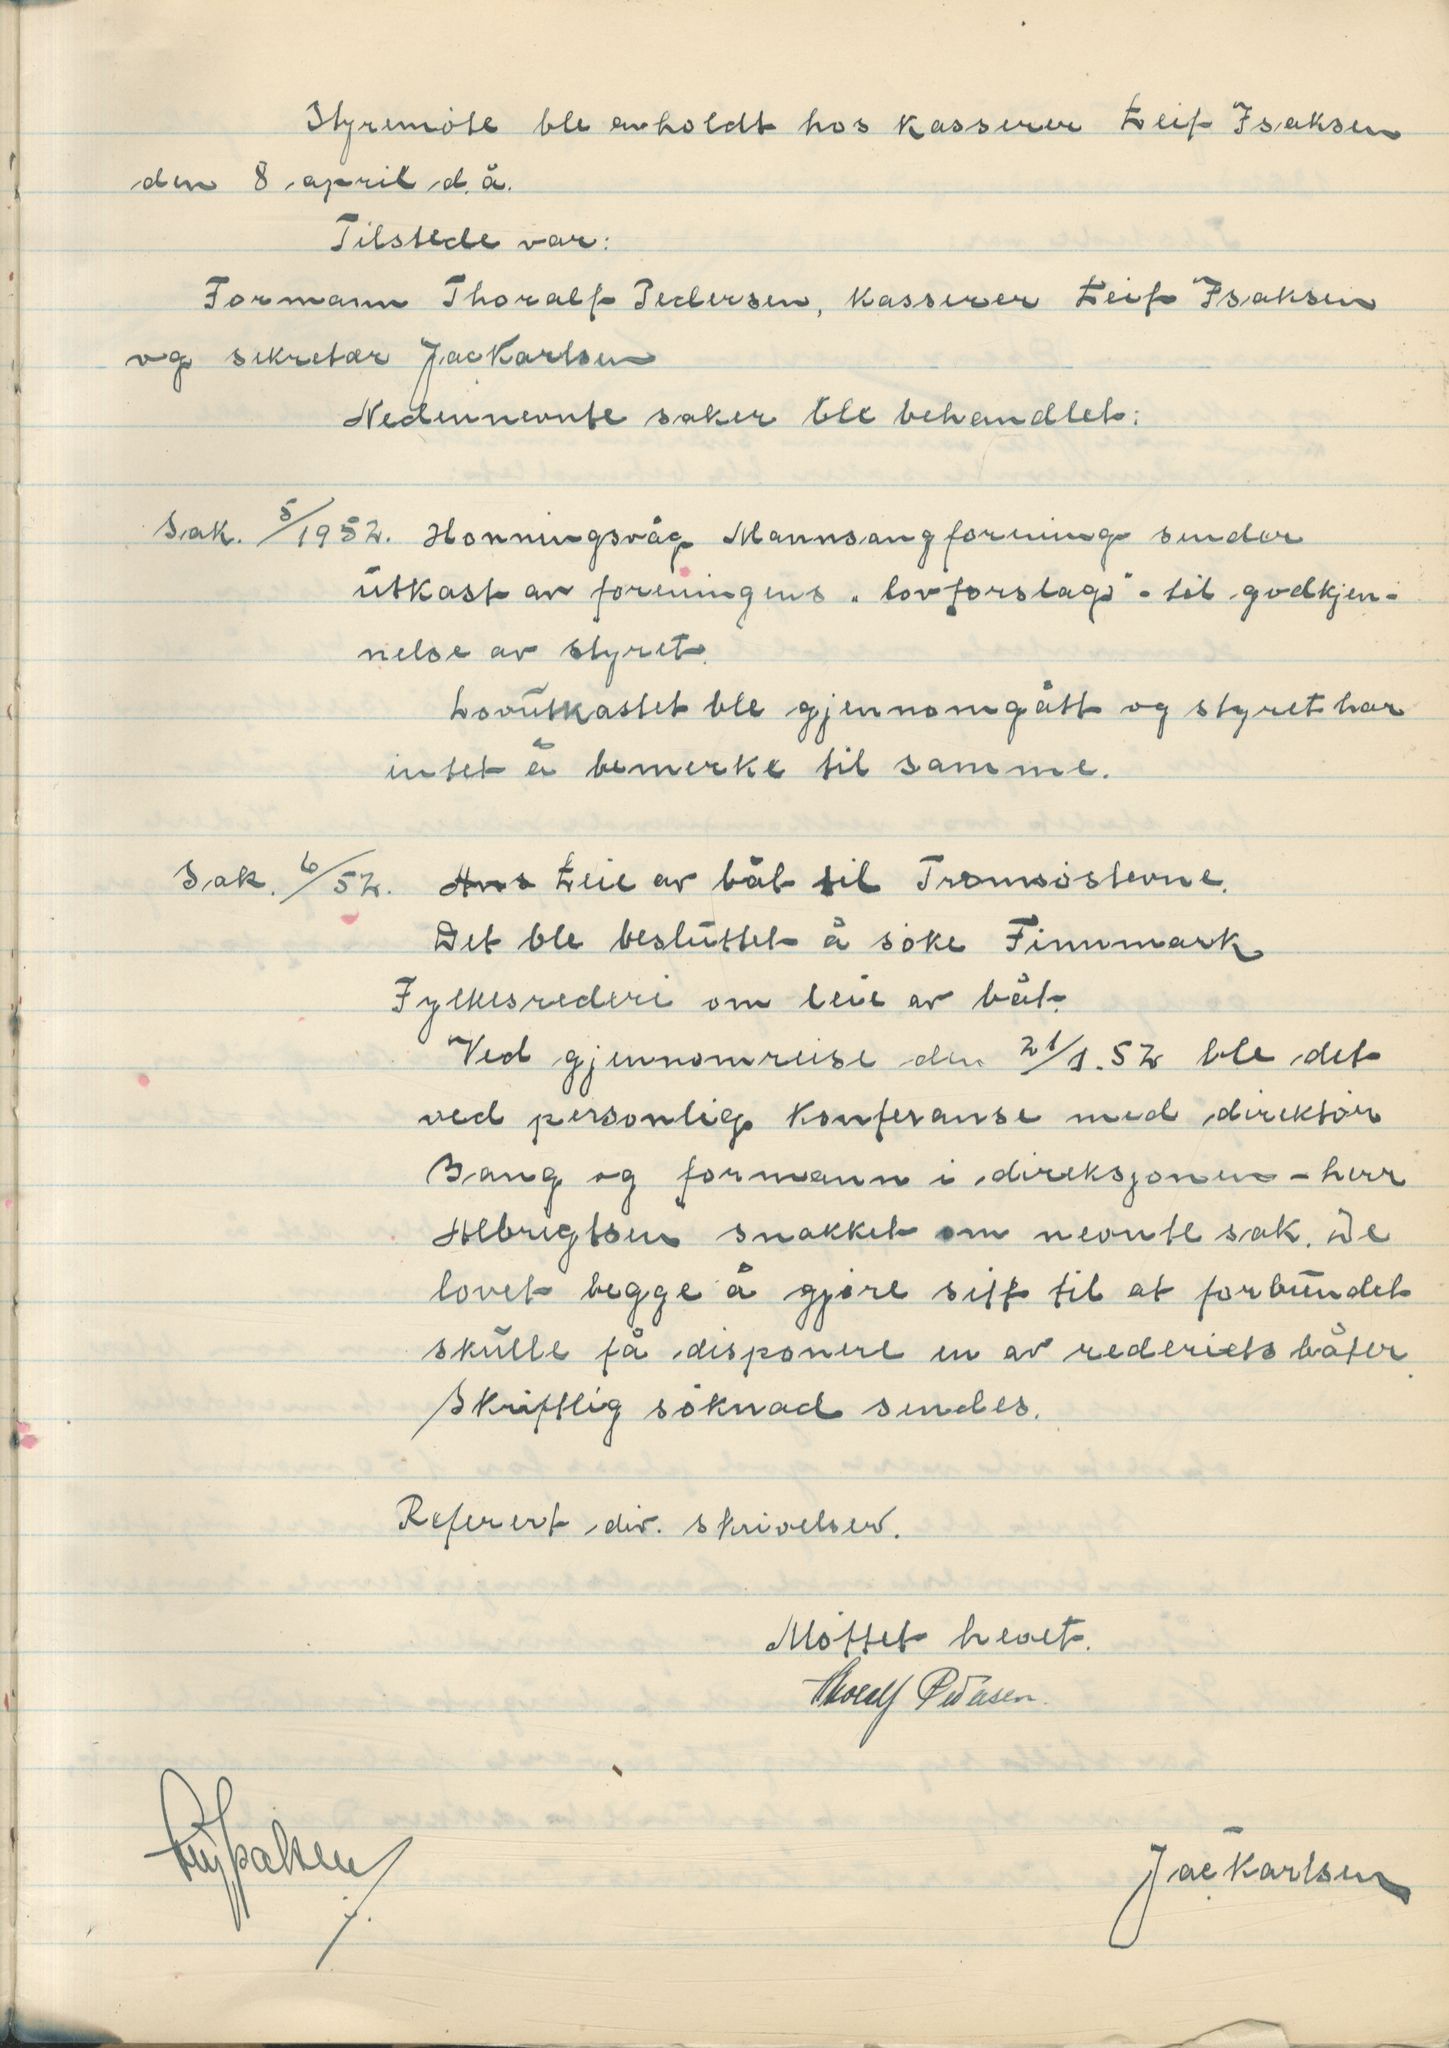 Styremöte ble avholdt hos kasserer Leif Isaksen
den 8 april d.å.
Tilstede var:
Formann Thoralf Pedersen, kasserer Leif Isaksen
og sekretær Jac Karlsen
Nedennevnte saker ble behandlet:
Sak. 5/1952. Honningsvåg Mannsangforening sender
utkast av foreningens "lovforslag" - til godkjen-
nelse av styret.
Lovutkastet ble gjennomgått og styret har
intet å bemerke til samme.
Sak. 6/52. Leie av båt til Tromsöstevne.
Det ble besluttet å söke Finnmark
Fylkesrederi om leie av båt.
Ved gjennomreise den 21/1.52 ble det
ved personlig konferanse med direktör
Bang og formann i direksjonen - herr
Albrigtsen snakket om nevnte sak. De
lovet begge å gjöre sitt til at forbundet
skulle få disponere en av rederiets båter
Skriftlig söknad sendes.
Referert div. skrivelser.
Möttet hevet.
Thoralf Pedersen.
Leif Isaksen
Jac Karlsen